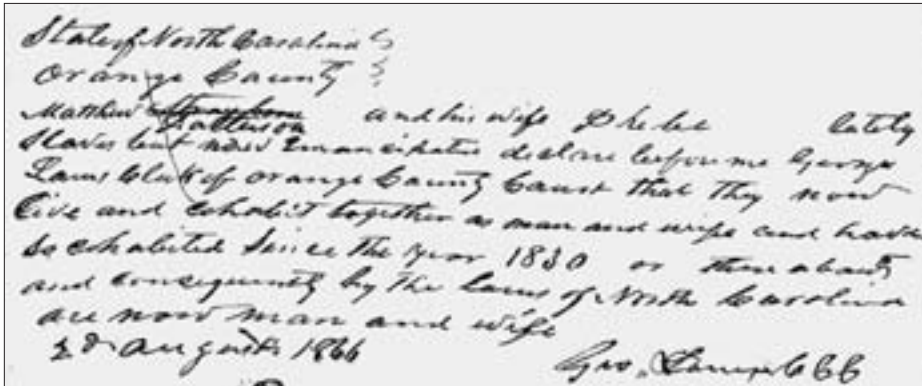 State of North Carolina
Orange County
Matthew Patterson and his wife Phebe lately
Slaves but now Emancipated declare before me George
Laws Clerk of Orange County Court that they now
live and cohabit together as man and wife and have
So cohabited Since the year 1830 or thereabouts
and consequently by the Laws of North Carolina
are now man and wife
2d August 1866
Geo. Laws CCC